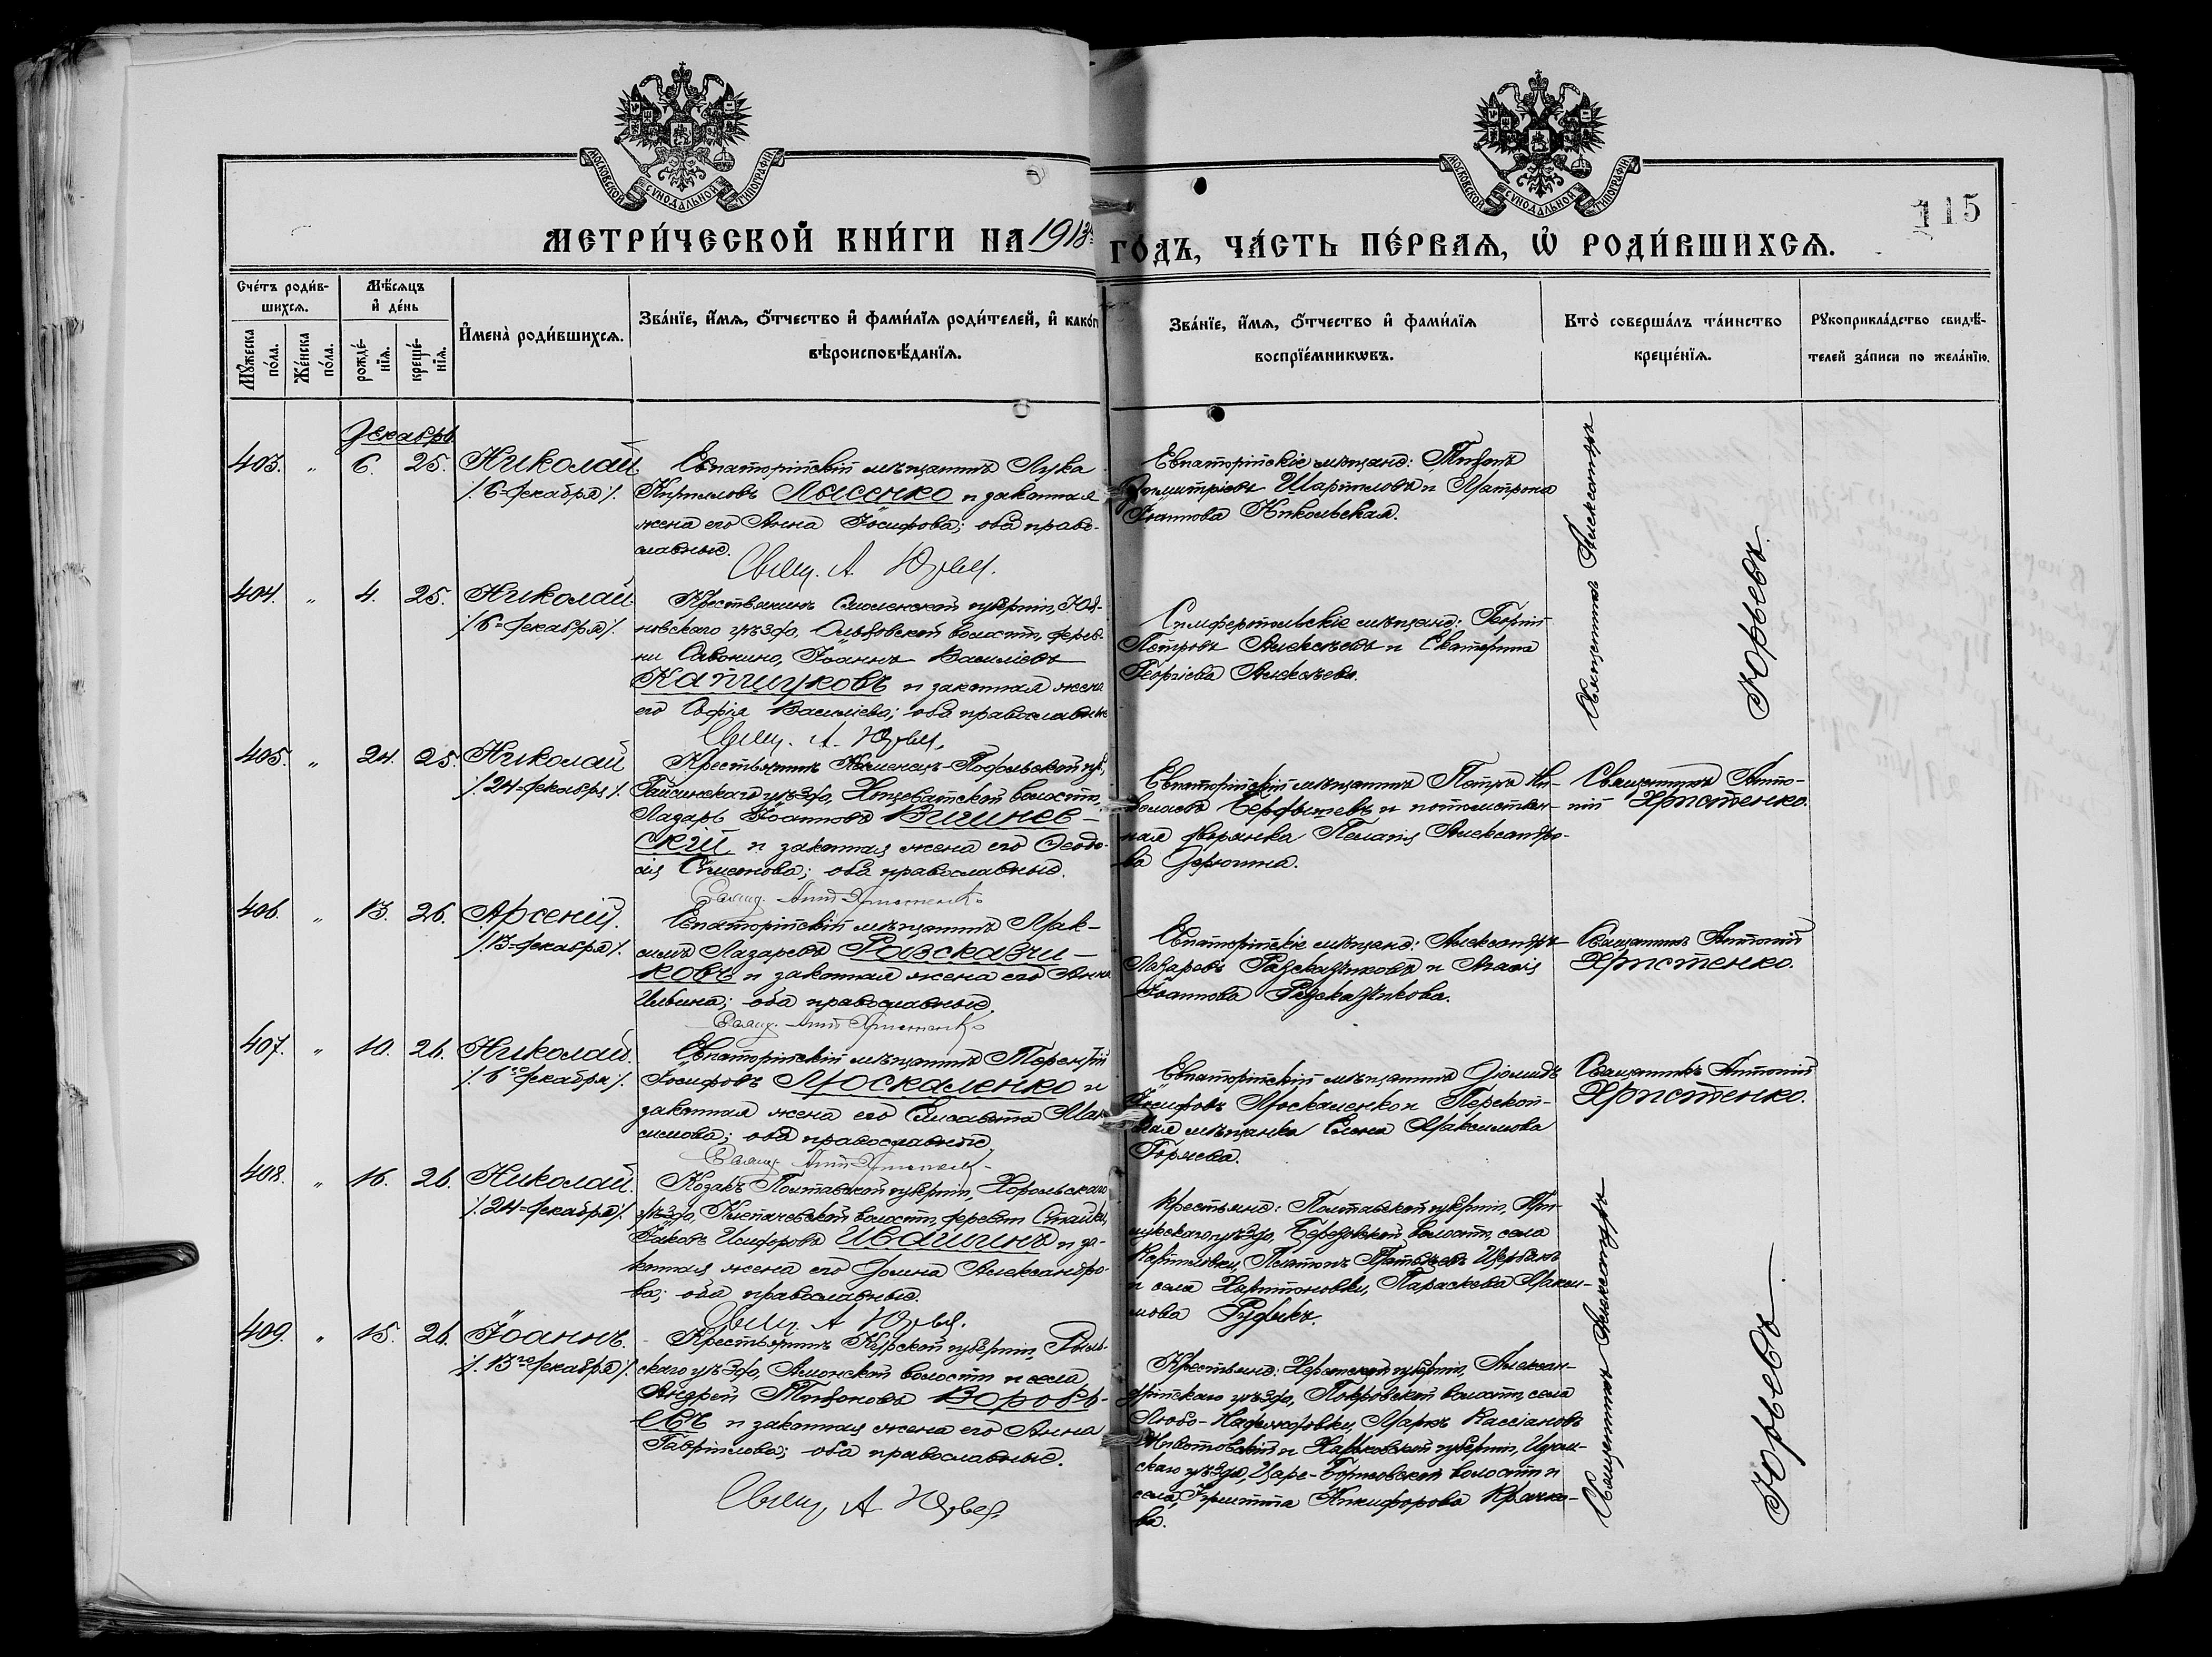 МОСКОВСКОЙ СѴНОДАЛЬНОЙ ТИПОГРАФІИ
МОСКОВСКОЙ СѴНОДАЛЬНОЙ ТИПОГРАФІИ
115
МЕТРИ́ЧЕСКОЙ КНИ́ГИ НА 1913й
ГО́ДЪ, ЧА́СТЬ ПЕ́РВАЯ, Ѡ҆ РОДИ́ВШИХСЯ.
Сче́тъ роди́в-
шихся.
Мꙋ́жеска
по́ла.
Же́нска
по́ла.
Мѣ́сяцъ
и҆ де́нь
рожде́-
нїя.
креще́-
нїя.
И҆мена̀ роди́вшихся.
Зва́нїе, и҆́мя, ѻ҆́тчество и҆ фами́лїя роди́телей, и҆ како́г
вѣроисповѣ́данїя.
Зва́нїе, и҆́мя, ѻ҆́тчество и҆ фами́лїя
воспрїе́мникѡвъ.
Кто̀ соверша́лъ та́инство
креще́нїя.
Рꙋкоприкла́дство свидѣ́-
телей за́писи по жела́нїю.
Декабрь
403. " 6. 25. Николай
/. 6=декабря/.
Евпаторійскій мѣщанинъ Лука
Кирилловъ Лысенко и законная
жена его Анна Іосифова; оба право-
славные.
Свящ. А. Юрьев.
Евпаторійскіе мѣщане: Тихонъ
Димитріевъ Шариловъ и Матрона
Іоаннова Никольская.
Священникъ Александръ
Юрьевъ.
404. " 4. 25. Николай
/. 6=декабря/.
Крестьянинъ Смоленской губерніи, Юх-
новскаго уѣзда, волости, дерев-
ни Савонино, Іоаннъ Василіевъ
Капшуковъ и законная жена
его Софія Василіева; оба православные
Свящ. А. Юрьев.
Симферопольскіе мѣщане: Георгій
Петровъ Алексѣевъ и Екатерина
Георгіева Алексѣева.
405. " 24. 25. Николай
/. 24=декабря/.
Крестьянинъ Каменецъ-Подольской губ.,
Гайсинскаго уѣзда, волости,
Лазарь Іоанновъ Вишнев-
скій и законная жена его Феодо-
сія Симеонова; оба православные.
Свящ. Ант Христенко
Евпаторійскій мѣщанинъ Петръ Ни-
колаевъ и потомствен-
ная дворянка Пелагія Александро-
ва Дерюгина.
Священникъ Анто-
ній Христенко.
406. " 13. 26. Арсеній.
/. 13=декабря/.
Евпаторійскій мѣщанинъ Мак-
симъ Лазаревъ Разсказчи-
ковъ и законная жена его Анна
Ильина; оба православные.
Свящ. Ант Христенко
Евпаторійскіе мѣщане: Александръ
Лазаревъ Разсказчиковъ и
Іоаннова Разсказчикова.
Священникъ Антоній
Христенко.
407. " 10. 26. Николай.
/. 6го декабря/.
Евпаторійскій мѣщанинъ Терентій
Іосифовъ Москаленко и
законная жена его Елисавета Мак-
симова; оба православные
Свящ. Ант Христенко
Евпаторійскій мѣщанинъ Діомидъ
Іосифовъ Москаленко и Перекоп-
ская мѣщанка Елена Максимова
Горяева.
Священникъ Антоній
Христенко.
408. " 16. 26. Николай.
/. 24=декабря/.
Козакъ Полтавской губерніи, Хорольскаго
уѣзда, волости, деревни
Іаковъ Ивашинъ и за-
конная жена его Домна Александро-
ва; оба православные.
Свящ. А Юрьев.
Крестьяне: Полтавской губерніи, При-
лукскаго уѣзда, Березовской волости, села
Платонъ Щербакъ
и села Харитоновки, Параскева Макси-
мова Рудыкъ.
Священникъ Александръ
Юрьевъ.
409. " 15. 26. Іоаннъ.
/. 13го декабря/.
Крестьянинъ Курской губерніи, Рыль-
скаго уѣзда, Амонской волости и села
Андрей Тихоновъ Воробь-
евъ и законная жена его Анна
Гавриилова; оба православные.
Свящ. А Юрьев.
Крестьяне: Херсонской губерніи, Алексан-
дрійскаго уѣзда, Покровской волости, села
Любо-Надеждовки, Маркъ Кассіановъ
и Харьковской губерніи, Изюм-
скаго уѣзда, Царе-Борисовской волости и
села, Христина Никифорова Крачко-
ва.